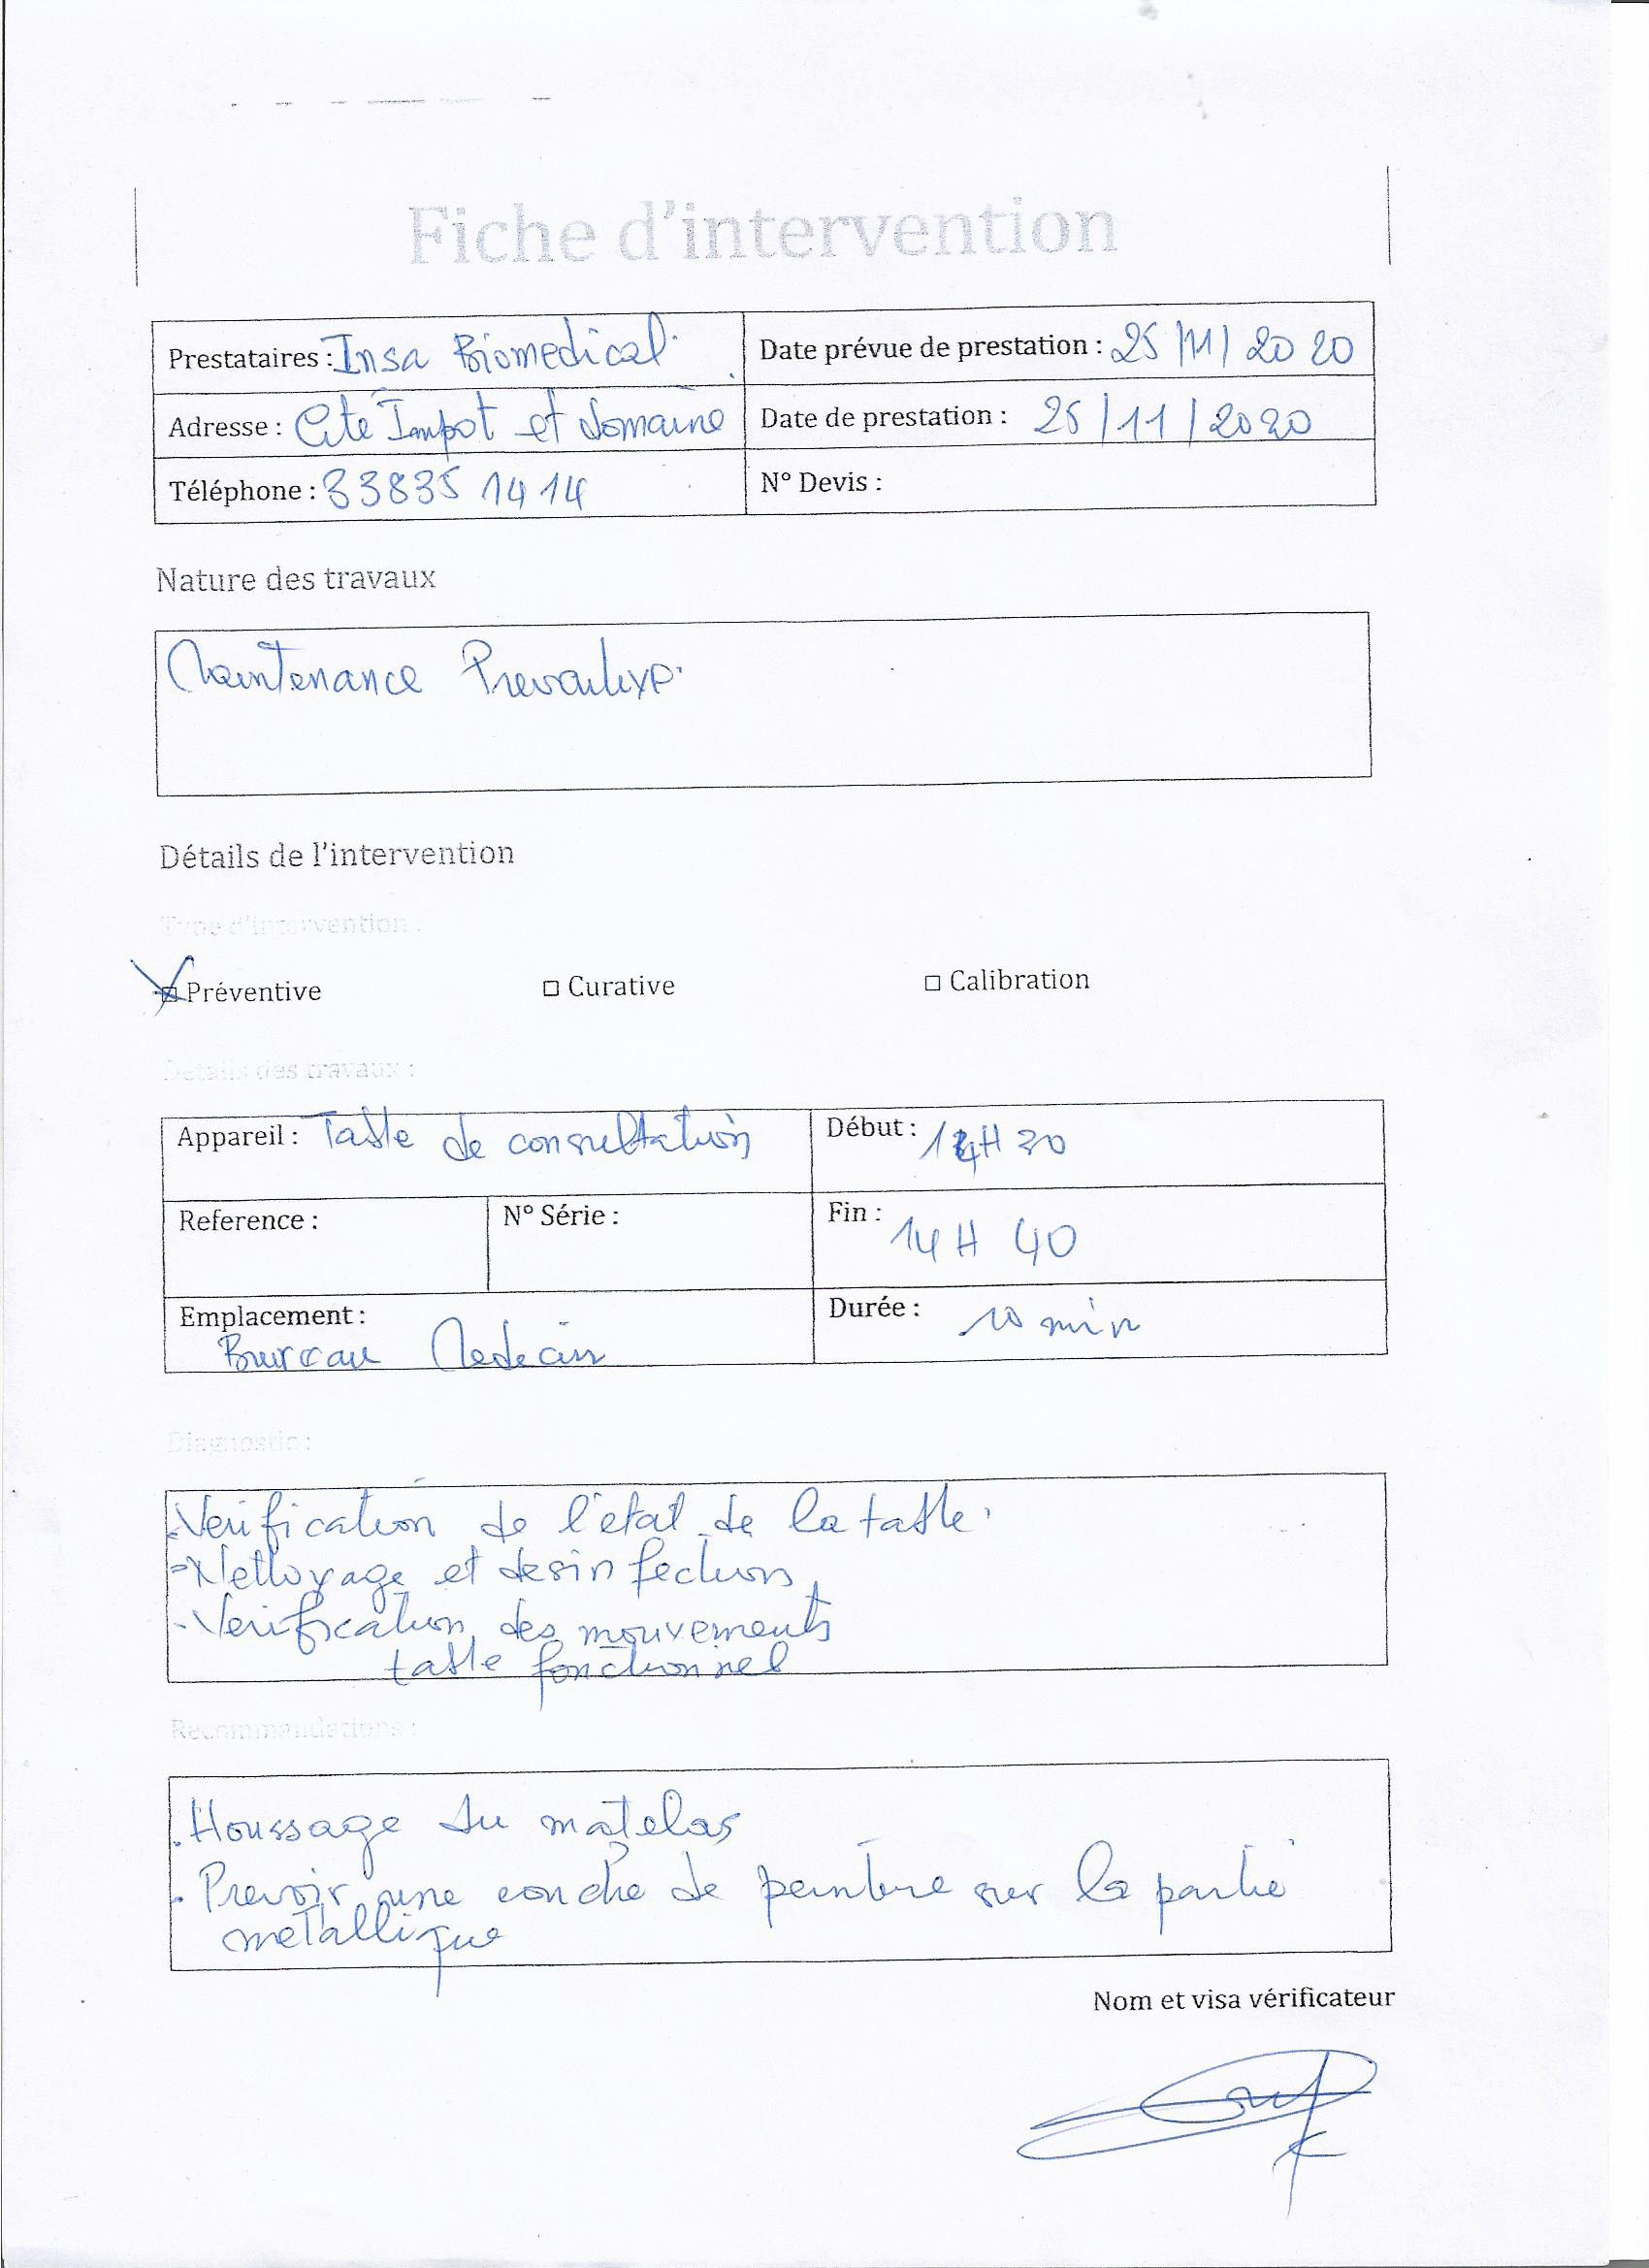 Fiche d'intervention
Prestataires : Insa Biomedical.
Date prévue de prestation : 25/11/2020
Adresse : Cité Impot et Domaine
Date de prestation : 25/11/2020
Téléphone : 33835 14 14
N° Devis :
Nature des travaux
Maintenance Preventive.
Détails de l'intervention
Type d'intervention :
Préventive
□ Curative
□ Calibration
Détails des travaux :
Appareil : Table de consultation
Début : 14H 30
Reference :
N° Série :
Fin : 14 H 40
Emplacement :
Bureau Medecin
Durée : 10 min
Diagnostic :
- Verification de l'etat de la table.
- Nettoyage et desinfection
- Verification des mouvements
table fonctionnel
Recommandations :
. Houssage du matelas
. Prevoir une couche de peinture sur la partie
metallique
Nom et visa vérificateur